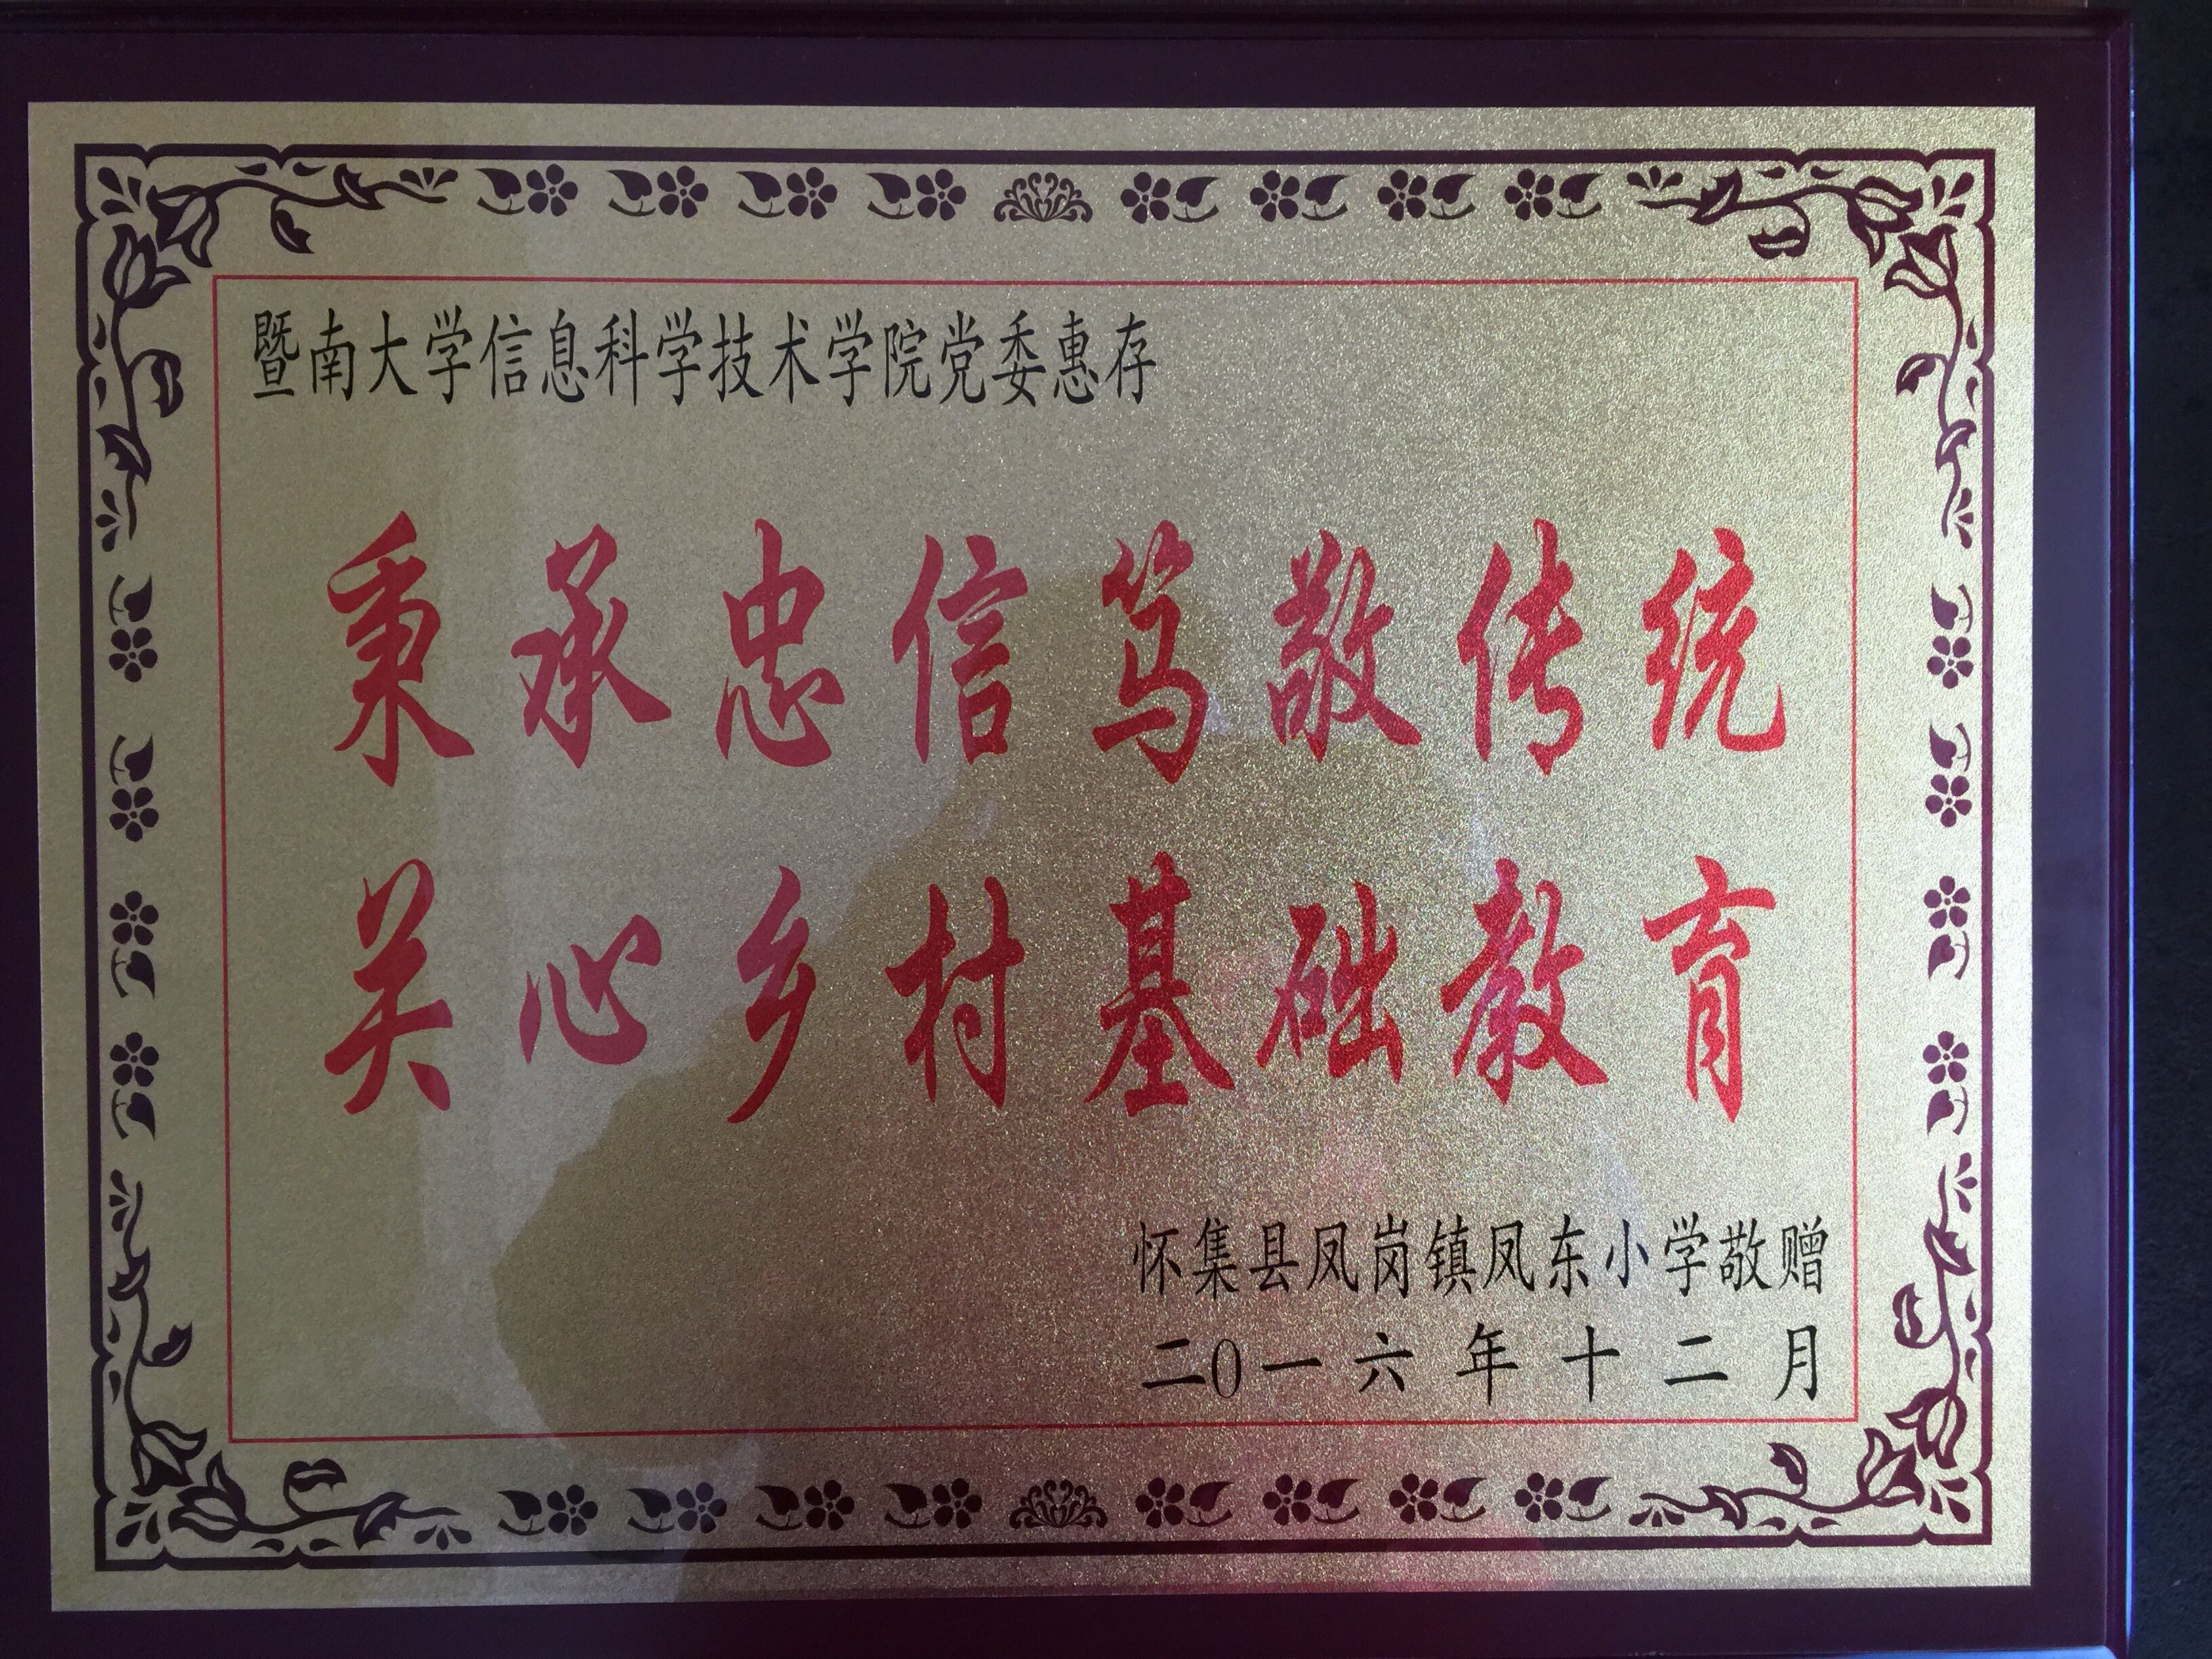 暨南大学信息科学技术学院党委惠存
秉承忠信笃敬传统
关心乡村基础教育
怀集县凤岗镇凤东小学敬赠
二0一六年十二月